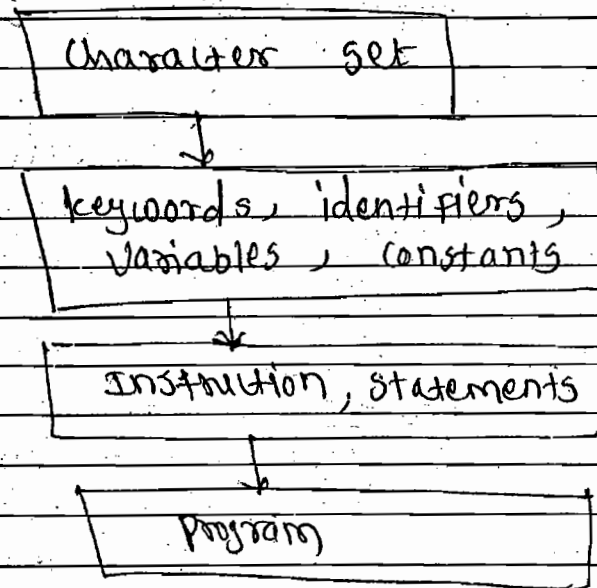 Character set
keywords, identifiers,
variables, constants
Instruction, statements
program